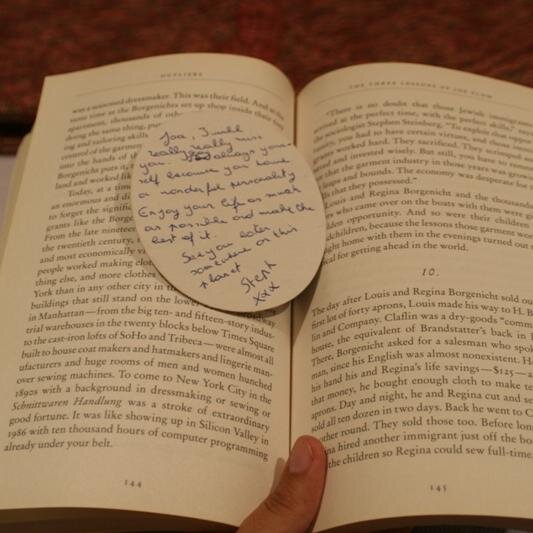 OUTLIERS
was a seasoned dressmaker. This was their field. And at the
same time as the Borgenichts set up shop inside their tiny
apartment, thousands of other
doing the same thing, put
ing and tailoring skills
control of the garment
into the hands of th
Borgenicht puts it,
land and worked like
Today, at a time
an enormous and di
to forget the signific
grants like the Borge
From the late nineteen
the twentieth century,
and most economically vi
people worked making cloth
thing else, and more clothes
York than in any other city in th
buildings that still stand on the lower
in Manhattan—from the big ten- and fifteen-story indus-
trial warehouses in the twenty blocks below Times Square
to the cast-iron lofts of SoHo and Tribeca—were almost all
built to house coat makers and hatmakers and lingerie man-
ufacturers and huge rooms of men and women hunched
over sewing machines. To come to New York City in the
1890s with a background in dressmaking or sewing or
Schnittwaren Handlung was a stroke of extraordinary
good fortune. It was like showing up in Silicon Valley in
1986 with ten thousand hours of computer programming
already under your belt.
144
Joa, I will
really really miss
you. always your-
self because you have
a wonderful personality
Enjoy your life as much
as possible and make the
best of it.
See you later
somewhere on this
planet
Steph
xxx
THE THREE LESSONS OF JOE FLOM
"There is no doubt that those Jewish immigrants
arrived at the perfect time, with the perfect skills," says
the sociologist Stephen Steinberg. "To exploit that oppor-
tunity, you had to have certain virtues, and those immi
worked hard. They sacrificed. They scrimped and
and invested wisely. But still, you have to remem
that the garment industry in those years was grow
leaps and bounds. The economy was desperate for
that they possessed."
Louis and Regina Borgenicht and the thousands
who came over on the boats with them were giv
golden opportunity. And so were their children
grandchildren, because the lessons those garment wor
ought home with them in the evenings turned out
cal for getting ahead in the world.
10.
The day after Louis and Regina Borgenicht sold ou
first lot of forty aprons, Louis made his way to H. B
lin and Company. Claflin was a dry-goods "comm
house, the equivalent of Brandstatter's back in
There, Borgenicht asked for a salesman who spok
man, since his English was almost nonexistent. H
his hand his and Regina's life savings—$125—a
that money, he bought enough cloth to make te
aprons. Day and night, he and Regina cut and se
sold all ten dozen in two days. Back he went to C
other round. They sold those too. Before lon
na hired another immigrant just off the bo
the children so Regina could sew full-time
145